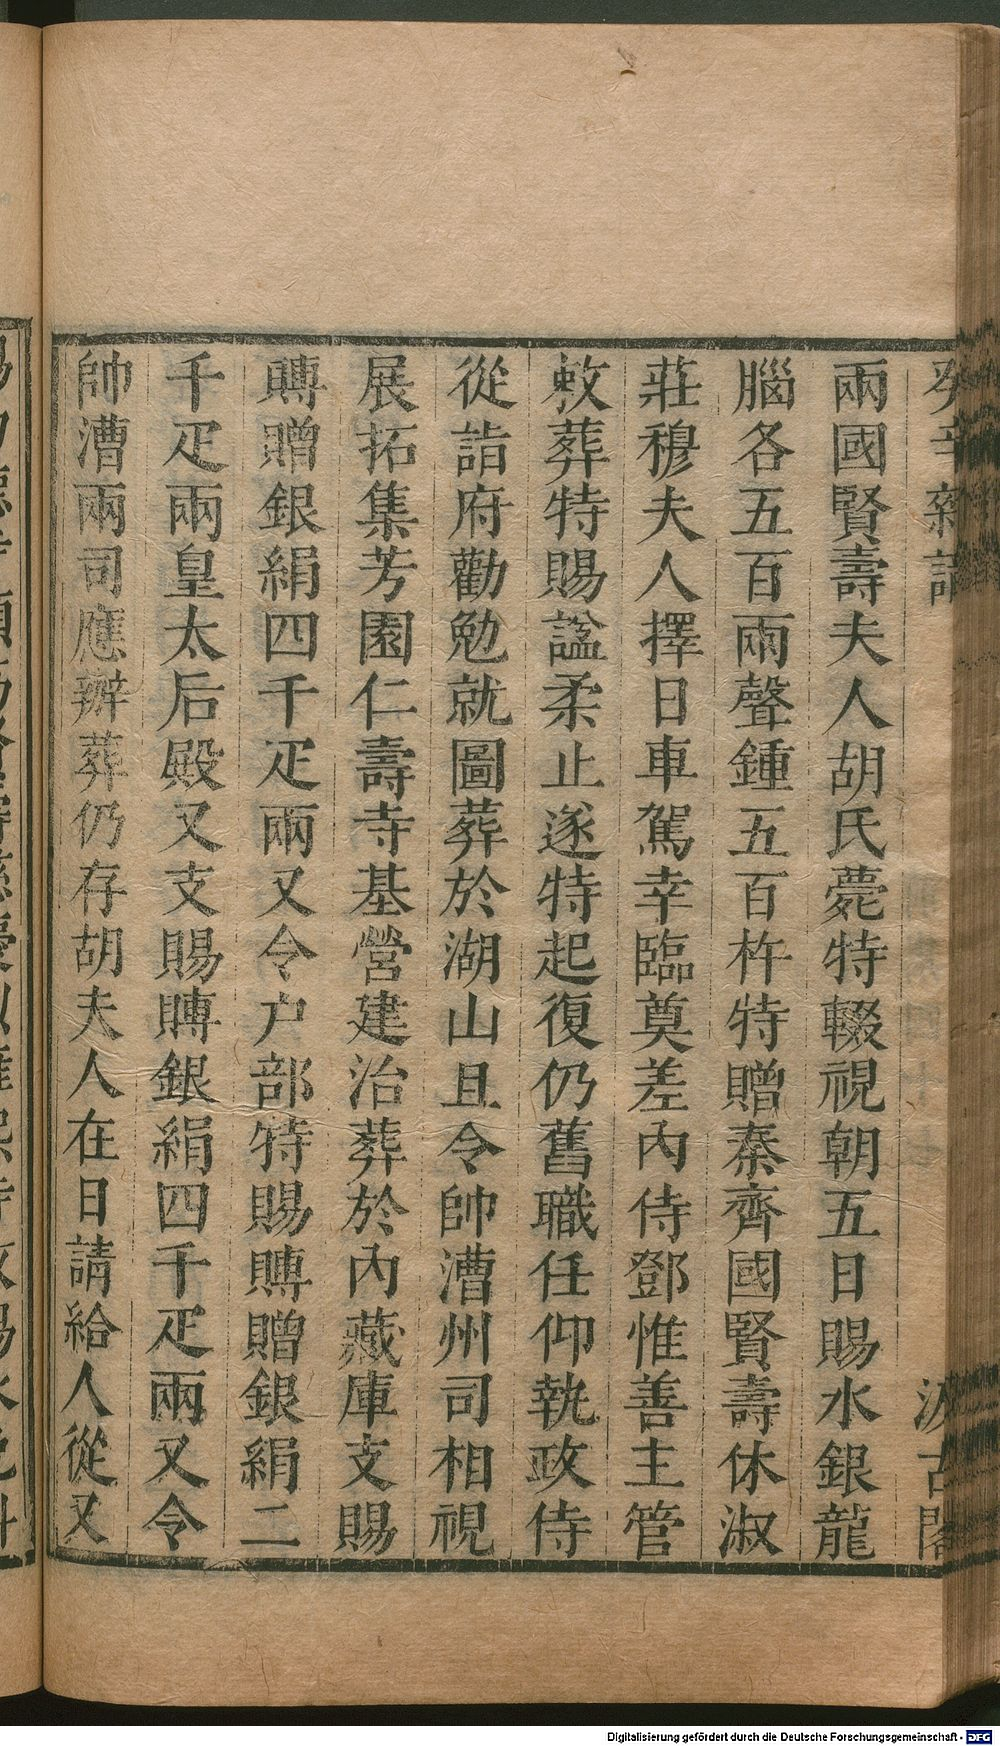 癸辛雜識 汲古閣
兩國賢壽夫人胡氏薨特輟視朝五日賜水銀龍
腦各五百兩聲鍾五百杵特贈秦齊國賢壽休淑
莊穆夫人擇日車駕幸臨奠差內侍鄧惟善主管
敕葬特賜諡柔止遂特起復仍舊職任仰執政侍
從詣府勸勉就圖葬於湖山且令帥漕州司相視
展拓集芳園仁壽寺基營建治葬於內藏庫支賜
賻贈銀絹四千疋兩又令户部特賜賻贈銀絹二
千疋兩皇太后殿又支賜賻銀絹四千疋兩又令
帥漕兩司應辦葬仍存胡夫人在日請給人從又
Digitalisierung gefördert durch die Deutsche Forschungsgemeinschaft - DFG